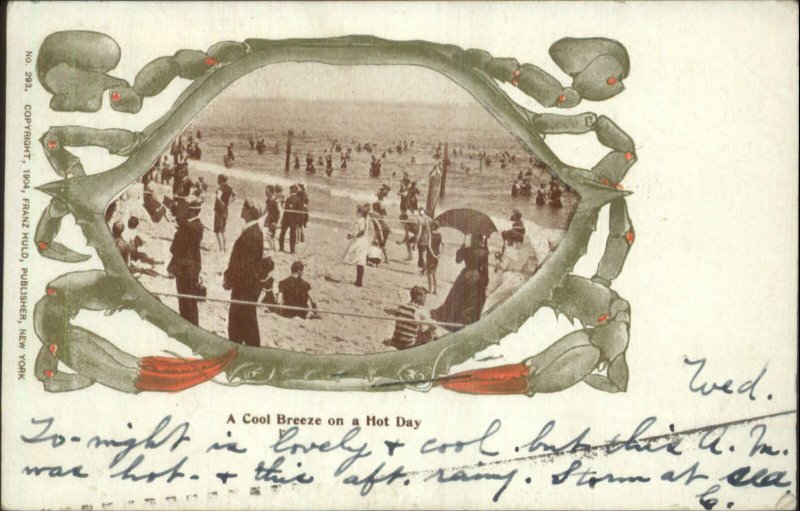 No. 293. COPYRIGHT, 1904, FRANZ HULD, PUBLISHER, NEW YORK
A Cool Breeze on a Hot Day
Wed.
To-night is lovely & cool. but this A.M.
was hot. & this aft. rainy. Storm at sea